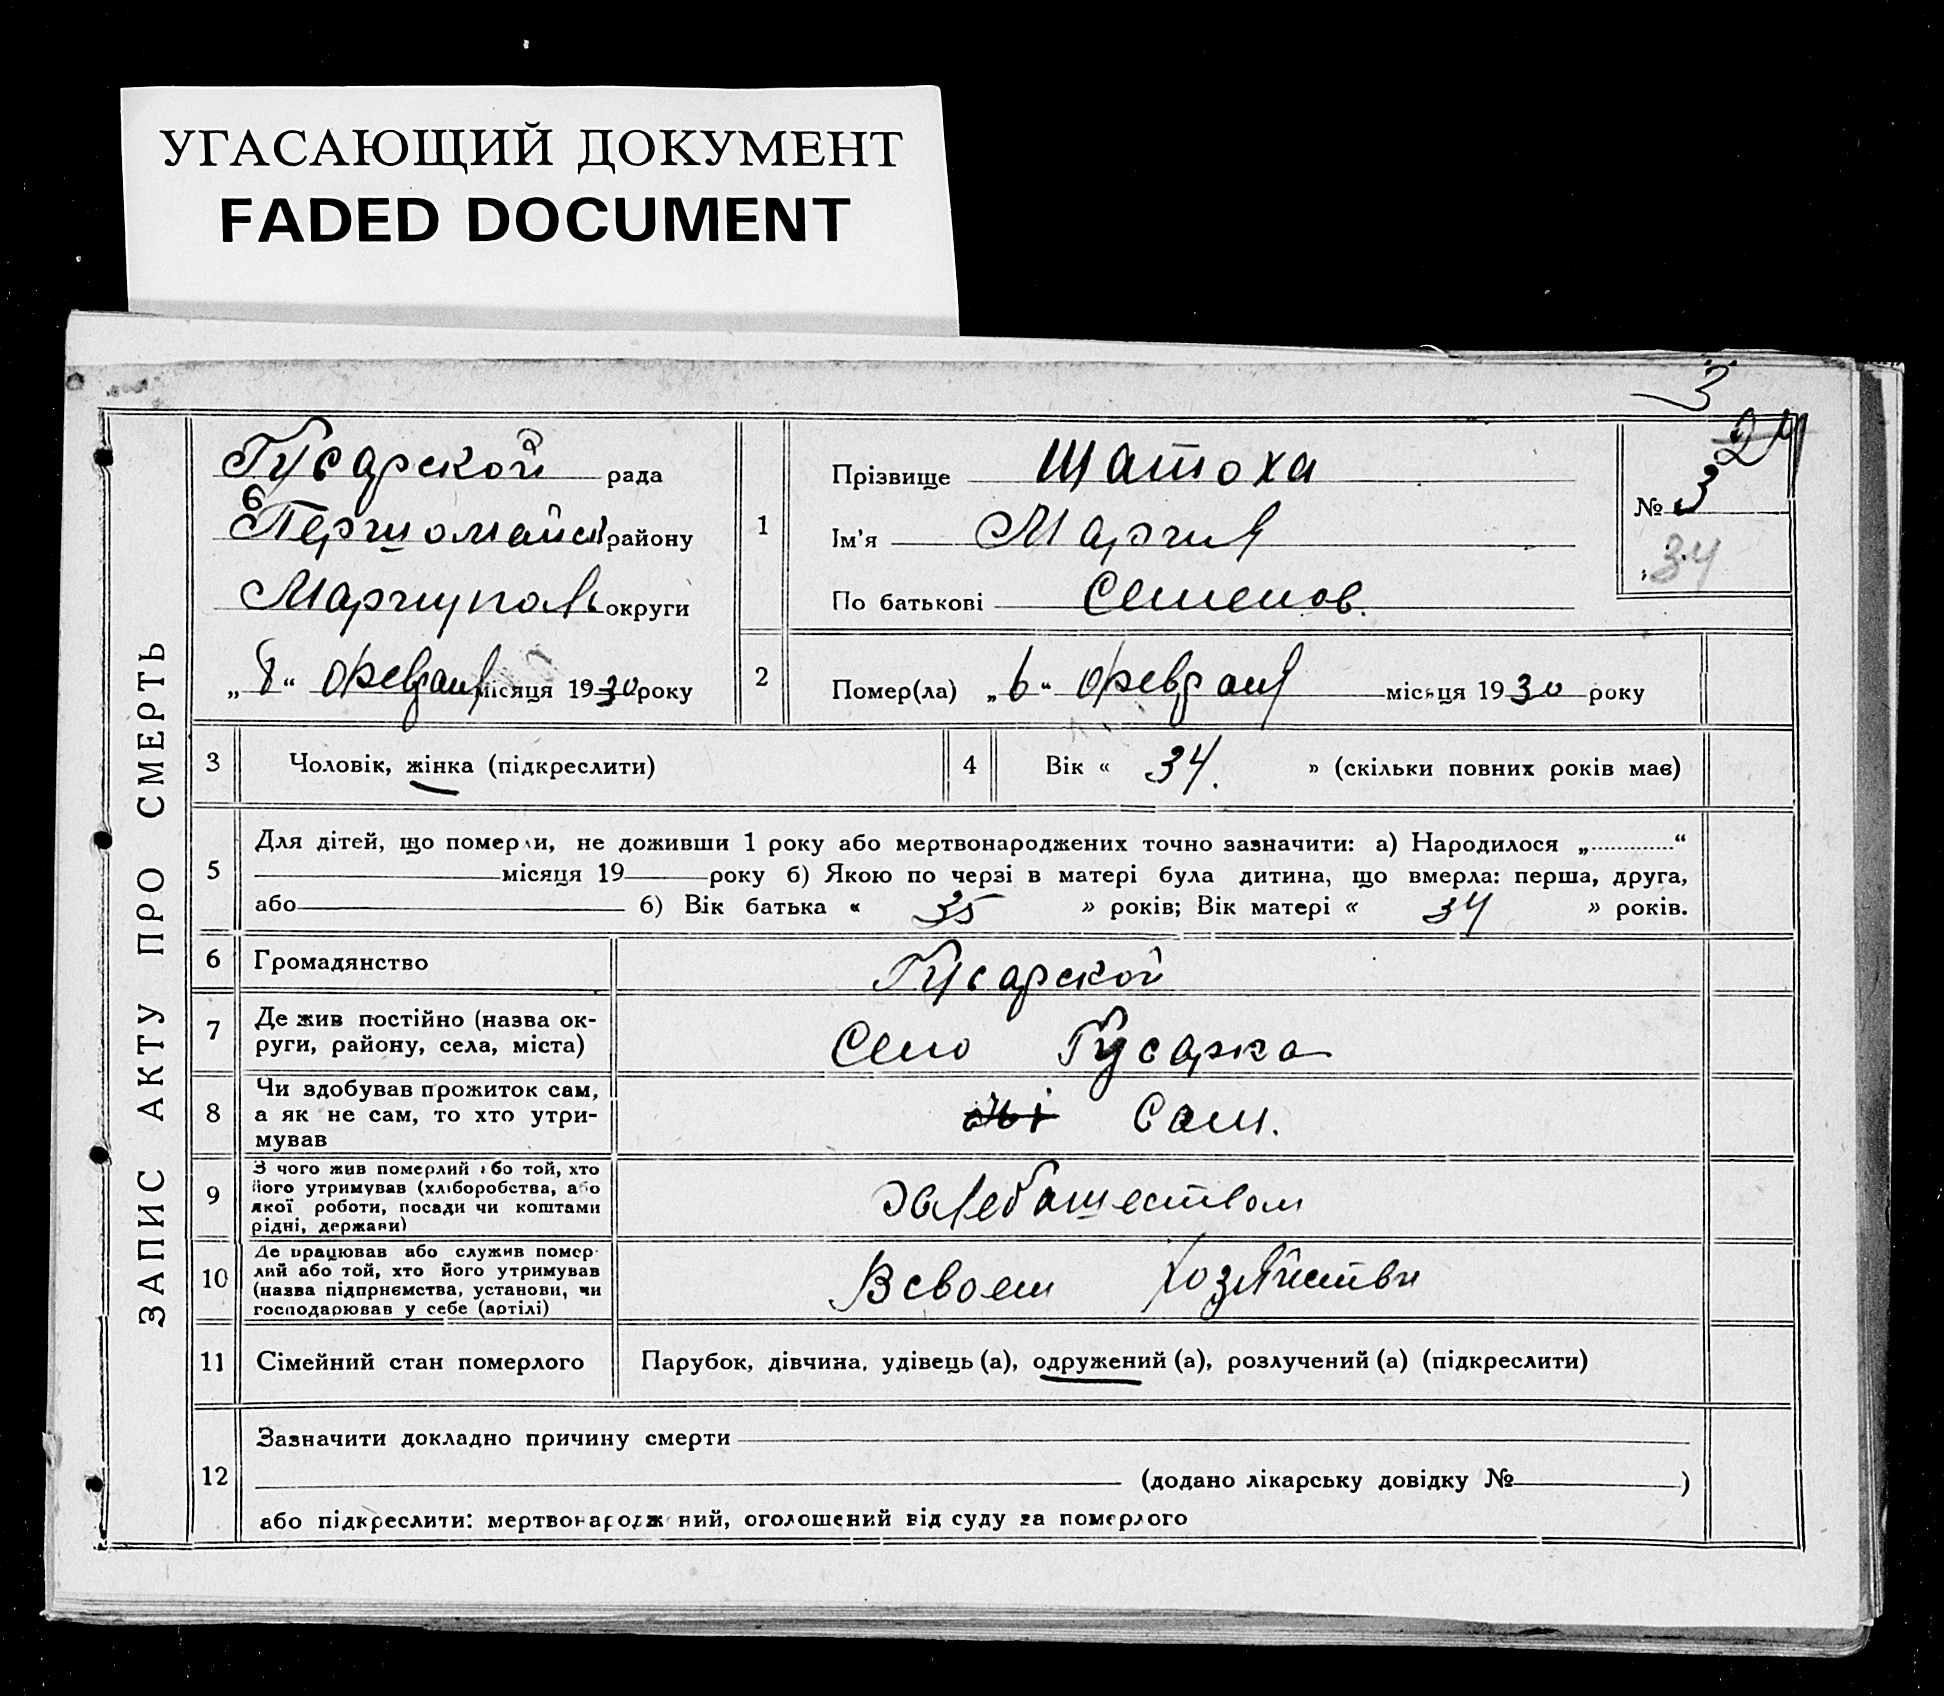 УГАСАЮЩИЙ ДОКУМЕНТ
FADED DOCUMENT
3
24
ЗАПИС АКТУ ПРО СМЕРТЬ
Гусарской рада
Першомайск району
Мариуполь округи
„8“ февраля місяця 1930 року
1
Прізвище Шатоха
Ім'я Мария
По батькові Семенов.
№ 3
34
2
Помер(ла) „6“ февраля місяця 1930 року
3 Чоловік, жінка (підкреслити)
4 Вік « 34. » (скільки повних років має)
5
Для дітей, що померли, не доживши 1 року або мертвонароджених точно зазначити: а) Народилося „ “
місяця 19 року б) Якою по черзі в матері була дитина, що вмерла: перша, друга,
або б) Вік батька « 35 » років; Вік матері « 34 » років.
6 Громадянство Гусарской
7 Де жив постійно (назва ок-
руги, району, села, міста)
Село Гусарка
8
Чи здобував прожиток сам,
а як не сам, то хто утри-
мував
Сам.
9
З чого жив померлий або той, хто
його утримував (хліборобства, або
якої роботи, посади чи коштами
рідні, держави)
Хлебашеством
10
Де працював або служив помер-
лий або той, хто його утримував
(назва підприємства, установи, чи
господарював у себе (артілі)
В своем хозяйстви
11 Сімейний стан померлого Парубок, дівчина, удівець (а), одружений (а), розлучений (а) (підкреслити)
12
Зазначити докладно причину смерти
(додано лікарську довідку № )
або підкреслити: мертвонароджений, оголошений від суду за померлого